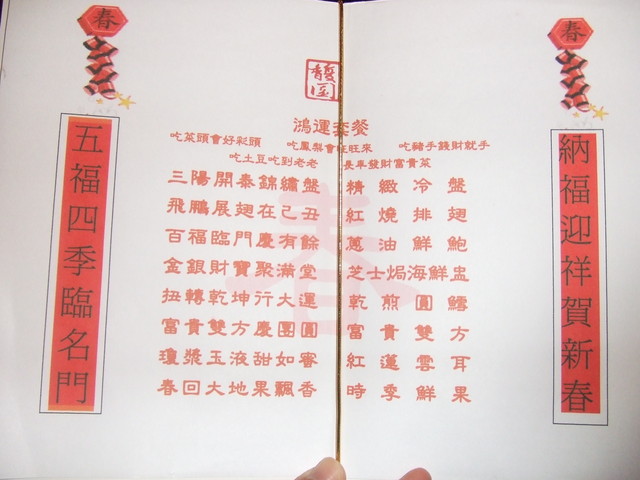 春
春
馥園
鴻運套餐
吃菜頭會好彩頭 吃鳳梨會旺旺來 吃豬手錢財就手
吃土豆吃到老老 長年發財富貴菜
三陽開泰錦繡盤 精緻冷盤
飛鵬展翅在己丑 紅燒排翅
百福臨門慶有餘 蔥油鮮鮑
金銀財寶聚滿堂 芝士焗海鮮盅
扭轉乾坤行大運 乾煎圓鱈
富貴雙方慶團圓 富貴雙方
瓊漿玉液甜如蜜 紅蓮雲耳
春回大地果飄香 時季鮮果
五福四季臨名門
納福迎祥賀新春
春